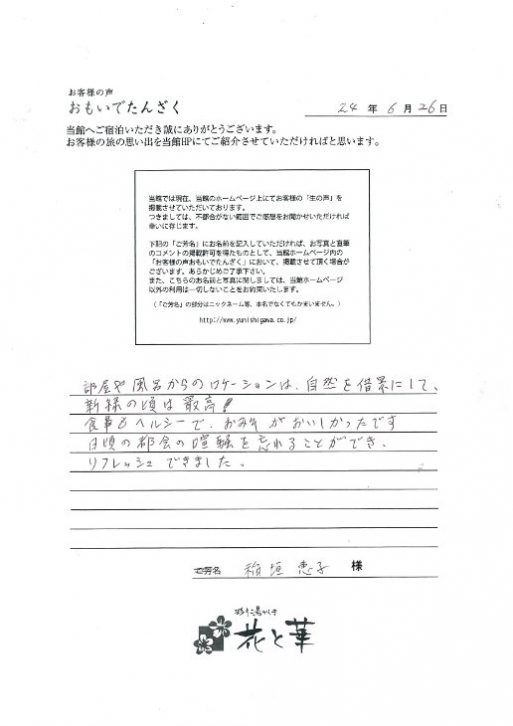 お客様の声
おもいでたんざく
24 年 6 月 26 日
当館へご宿泊いただき誠にありがとうございます。
お客様の旅の思い出を当館HPにてご紹介させていただければと思います。
当館では現在、当館のホームページ上にてお客様の「生の声」を
掲載させていただいております。
つきましては、不都合がない範囲でご感想をお聞かせいただければ
幸いに存じます。
下記の「ご芳名」にお名前を記入していただければ、お写真と直筆
のコメントの掲載許可を得たものとして、当館ホームページ内の
「お客様の声おもいでたんざく」において、掲載させて頂く場合が
ございます。あらかじめご了承下さい。
また、こちらのお名前と写真に関しましては、当館ホームページ
以外の利用は一切しないことをお約束いたします。
(「ご芳名」の部分はニックネーム等、本名でなくてもかまいません。)
http://www.yunishigawa.co.jp/
部屋や風呂からのロケーションは、自然を借景にして、
新緑の頃は最高!
食事もヘルシーで、おみそがおいしかったです
日頃の都会の喧騒を忘れることができ、
リフレッシュできました。
ご芳名 稲垣 恵子 様
花と華